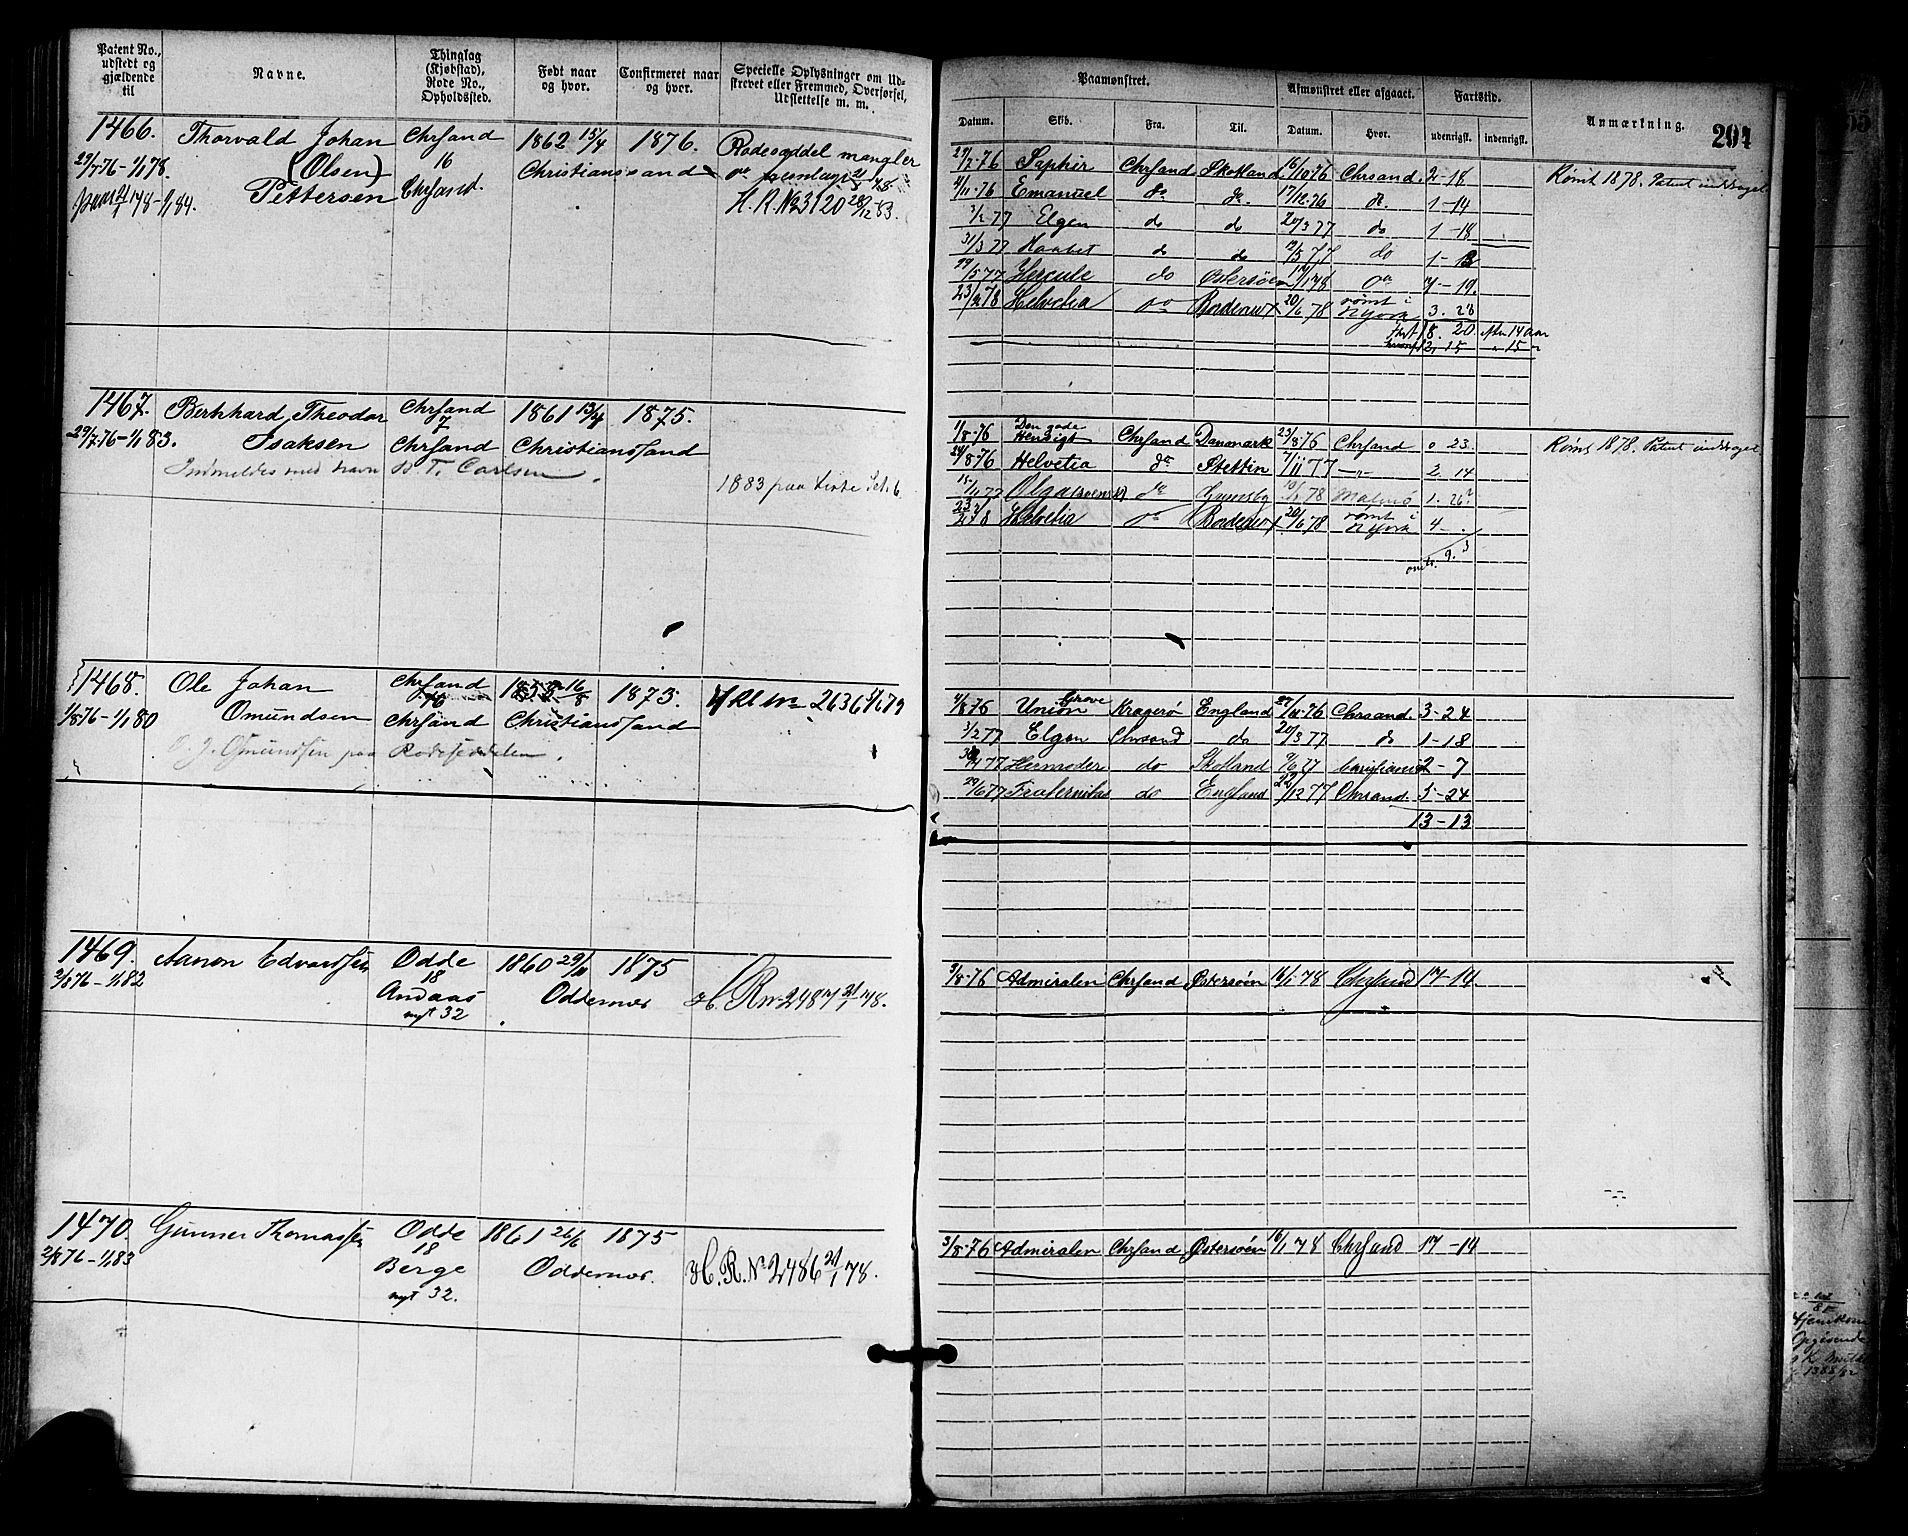 Patent No., udstedt og gjældende til
Navne.
Thinglag (Kjøbstad), Rode No., Opholdssted.
Født naar og hvor.
Confirmeret naar og hvor.
Specielle Oplysninger om Udskrevet eller Fremmed, Overførsel, Udslettelse m. m.
Paamønstret.
Afmønstret eller afgaaet.
Fartstid.
Anmærkning.
204
Datum. Skib. Fra. Til. Datum. Hvor. udenrigsk. indenrigsk.
1466. Thorvald Johan Chrsand 1862 15/4 1876. Rodeseddel mangler
29/7 76 - 1/1 78. (Olsen) 16 Christianssand
Pettersen Chrsand. H.R. No 3120 28/12 83.
29/7-76 Saphir Chrsand Skotland 16/10 76 Chrsand. 2-18 Rømt 1878. Patent inddraget
2/11-76 Emanuel do do 17/12-76 do 1-14
3/2 77 Elgen do do 20/3 77 do 1-18
31/3 77 Haabet do do 12/5 77 do
Hercules do Østersøen 7-19.
23/2 78 Helvetia do Bordeaux 20/6 78 rømt i NYork 3. 28
8. 20. efter 14 aar
2, 15 " 15 "
1467. Bernhard Theodor Chrsand 1861 13/4 1875.
29/7 76 - 1/1 83. Isaksen 7 Chrsand Christianssand
Indmeldes med navn B. T. Carlsen.
1883 paa Liste
11/8-76 Den gode Hensigt Chrsand Danmark 23/8 76 Chrsand 0 23. Rømt 1878. Patent inddraget
24/8 76 Helvetia do Stettin 7/11 77 -"- 2. 14
15/11 77 Olga (svensk) do Grimsby Malmø 1. 26
23/2 78 Helvetia do Bordeaux 20/6 78 rømt i NYork 4 - .
9. 3
1468. Ole Johan Chrsand 16 1873.
1/8 76 - 1/1 80 Omundsen Chrsand Christianssand
O. J. Omundsen paa Rodeseddelen.
4/8 76 Union Grove Kragerø England 27/11-76 Chrsand. 3-24
3/2 77 Elgen Chrsand do 20/3 77 do 1-18
Hermoder do Skotland 9/6 77 Christiania 2-7
29/6 77 Fraternitas do England 22/12 77 Chrsand. 5-24
13-13
1469. Aanon Edvardsen Odde 1860 29/11 1875
2/8 76 - 1/1 82 18 Andaas Oddernes H. R No 2487 21/1 78.
nyt 32
3/8-76 Admiralen Chrsand Østersøen 16/1-78 Chrsand 17-14
1470. Gunner Thomassen Odde 1861 26/6 1875
2/8 76 - 1/1 83 18 Berge Oddernes. H. R. No 2486 21/1 78.
nyt 32.
3/8-76 Admiralen Chrsand Østersøen 16/1 78 Chrsand 17-14